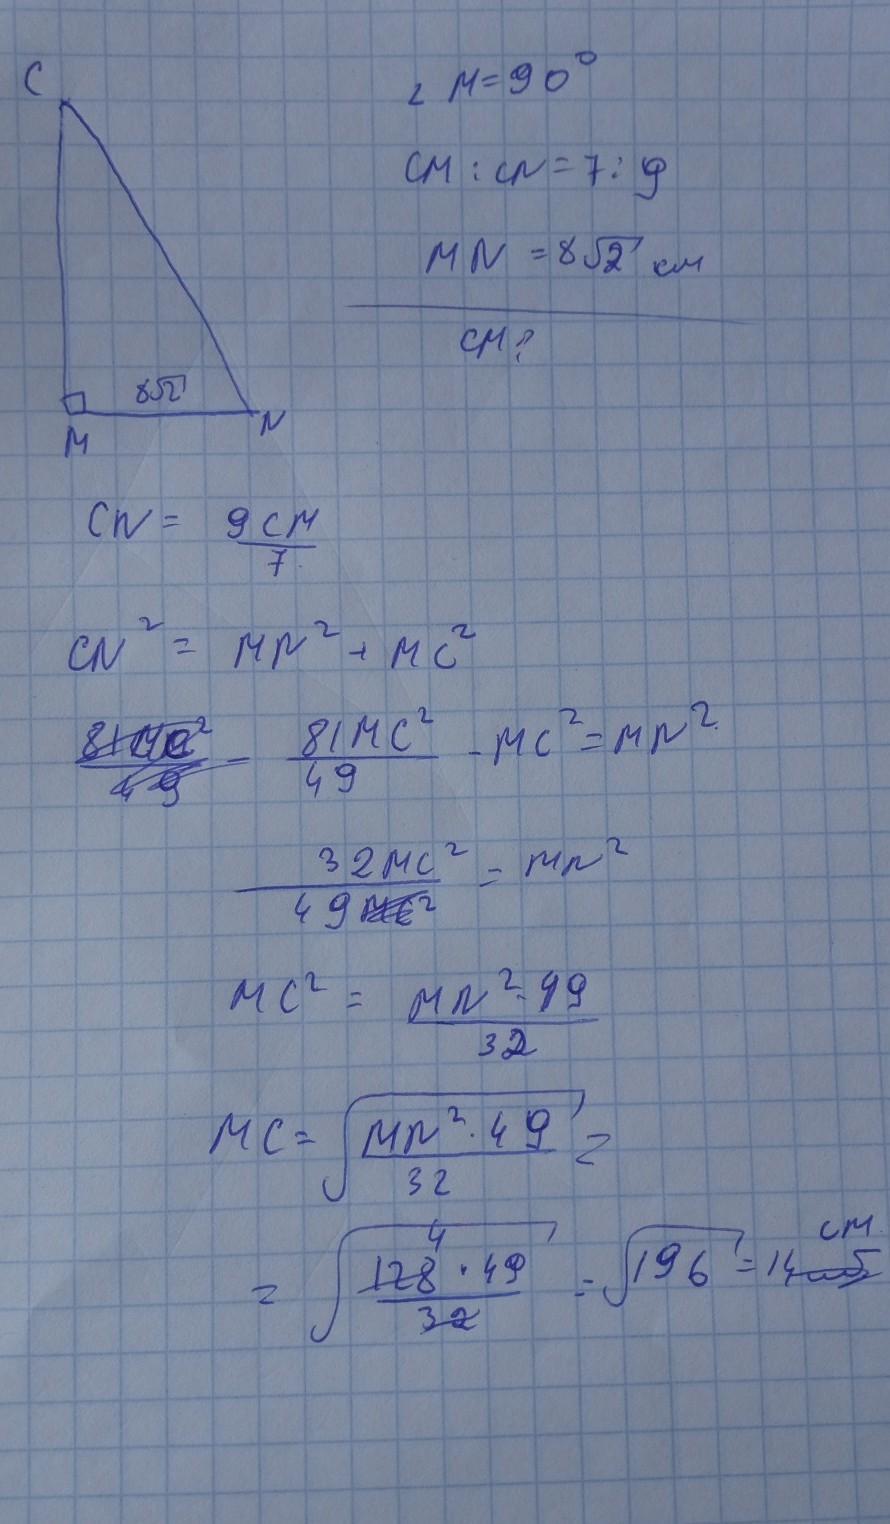 C
∠ M = 90°
CM : CN = 7 : 9
MN = 8√2 см
CM ?
8√2
M N
CN = 9CM/7
CN² = MN² + MC²
81MC²/49 - MC² = MN²
32MC²/49 = MN²
MC² = MN²·49/32
MC = √(MN²·49/32) =
= √(128·49/32) 4 = √196 = 14 см